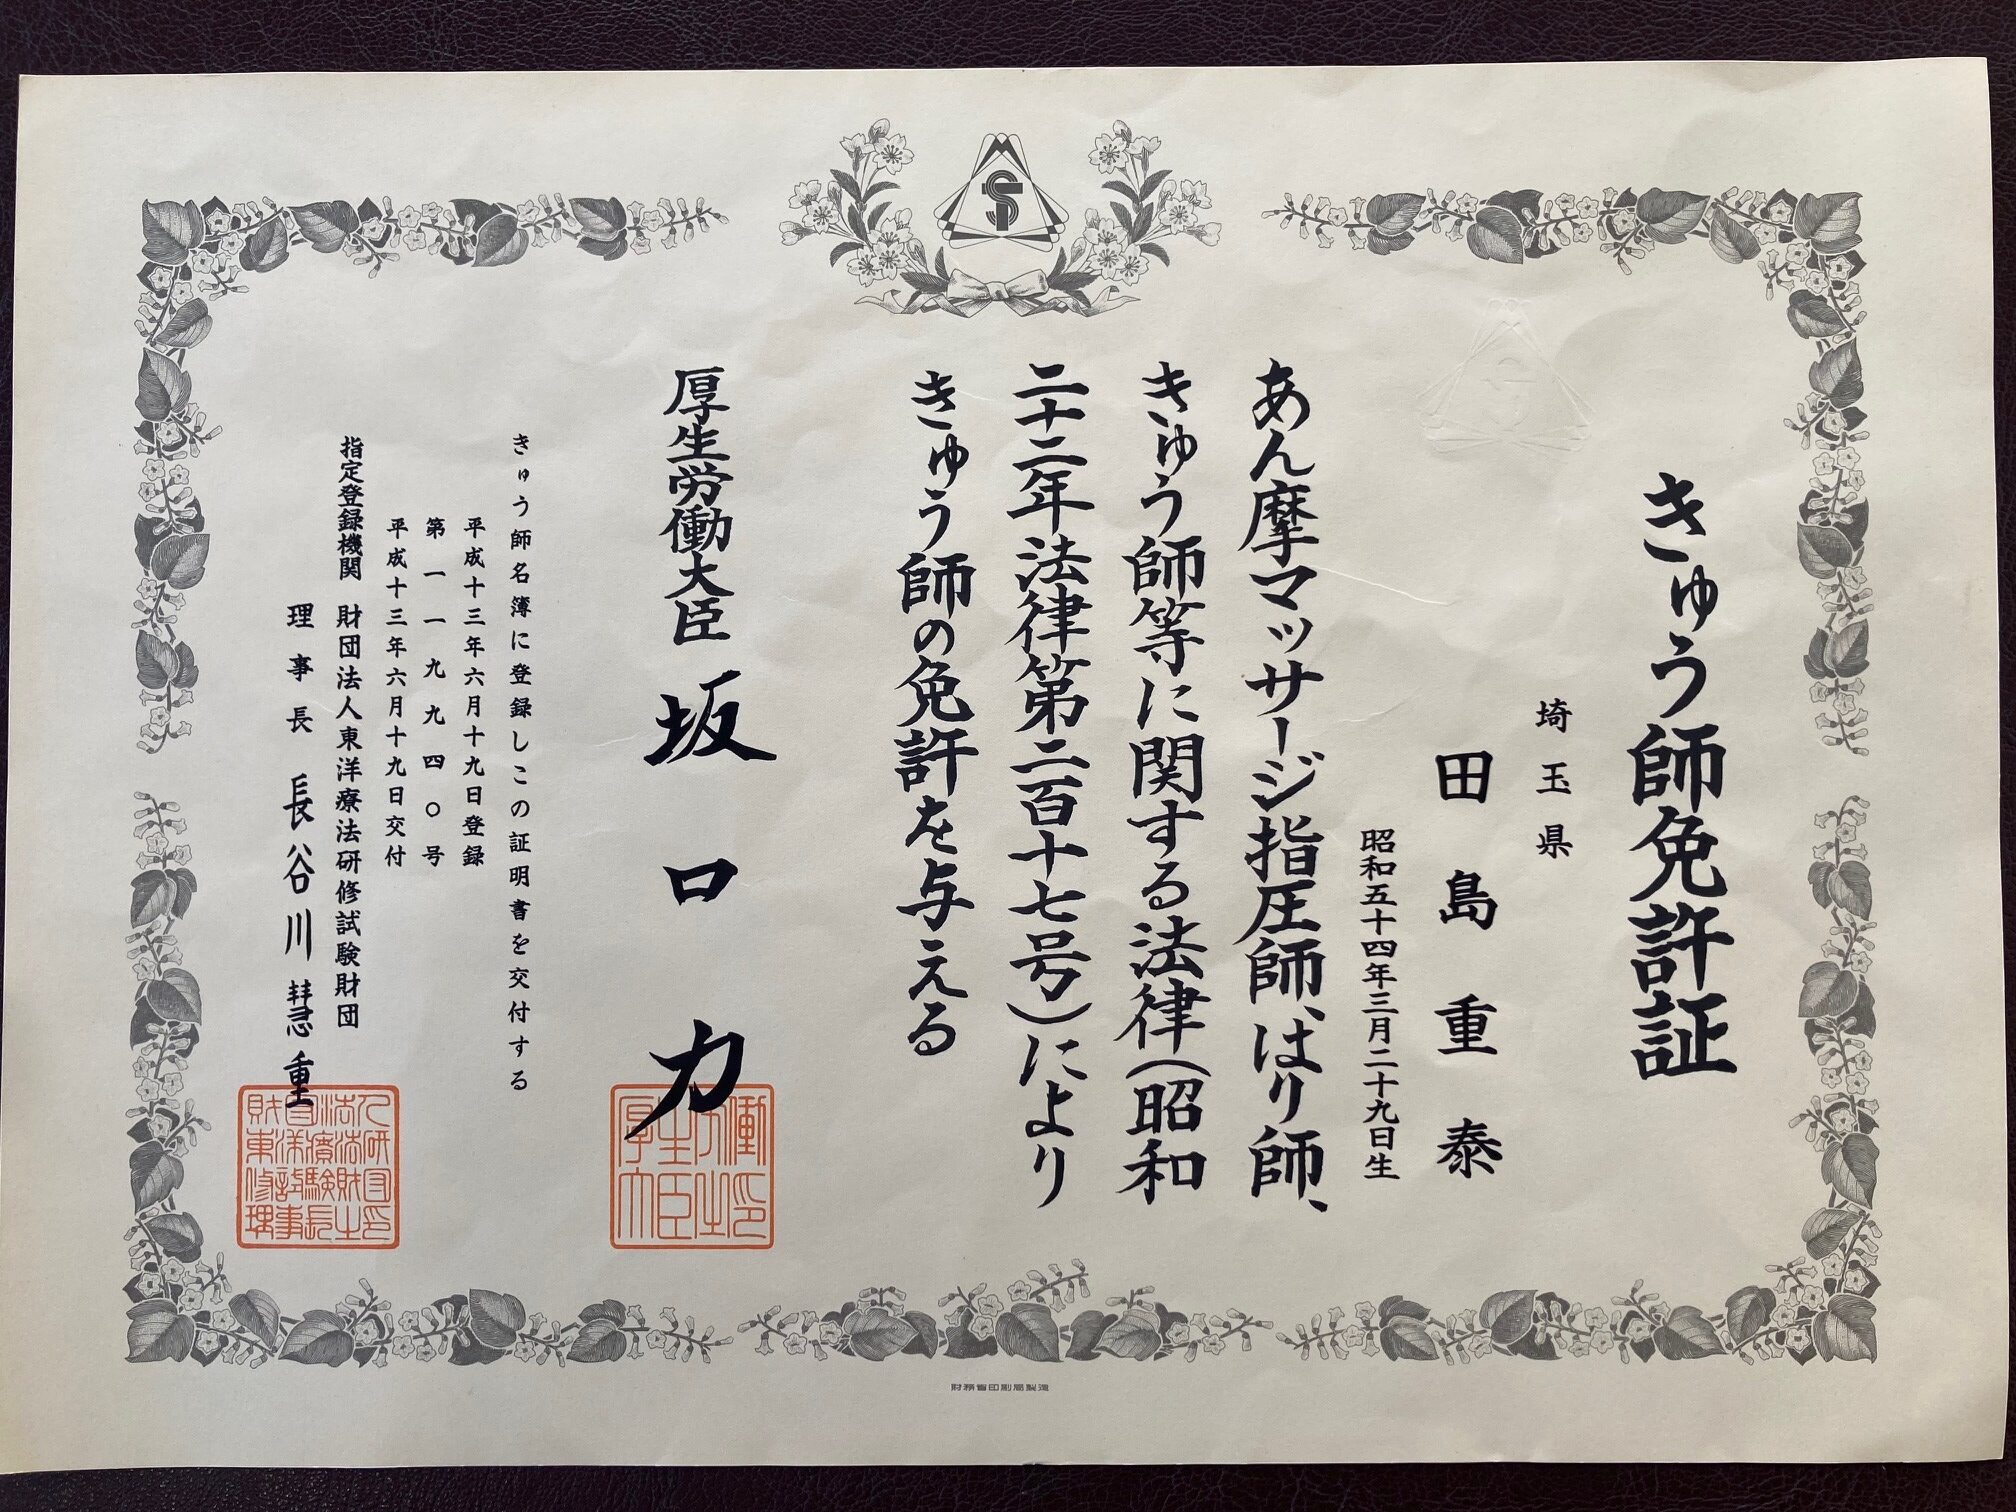 きゅう師免許証
埼玉県
田島重泰
昭和五十四年三月二十九日生
あん摩マッサージ指圧師、はり師、
きゅう師等に関する法律(昭和
二十二年法律第二百十七号)により
きゅう師の免許を与える
厚生労働大臣 坂口力
きゅう師名簿に登録しこの証明書を交付する
平成十三年六月十九日登録
第一一九九四〇号
平成十三年六月十九日交付
指定登録機関 財団法人東洋療法研修試験財団
理事長 長谷川慧重
財務省印刷局製造